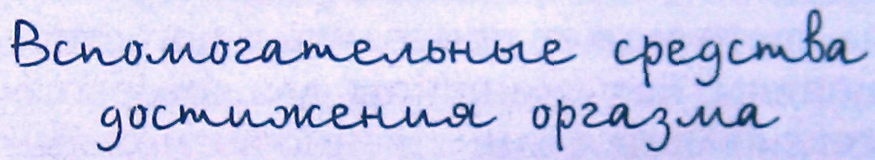 Вспомогательные средства
достижения оргазма